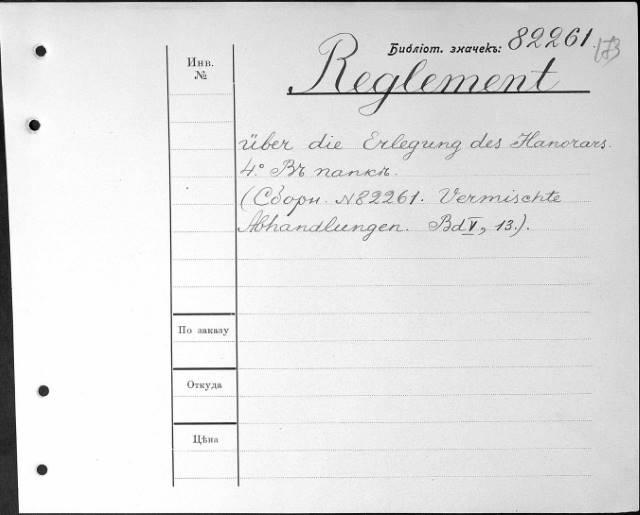 Библіот. значекъ: 82261.
Инв.
№
Reglement
über die Erlegung des Hanorars.
4.° Въ папкѣ.
(Сборн. N 82261. Vermischte
Abhandlungen. Bd V, 13.).
По заказу
Откуда
Цѣна